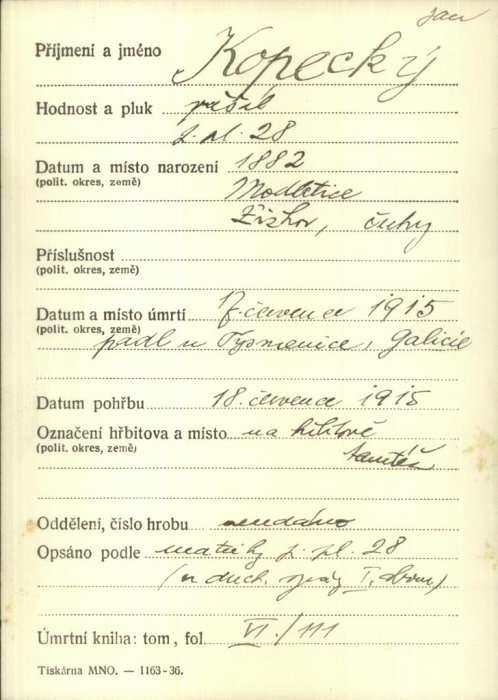 Jan
Příjmení a jméno Kopecký
Hodnost a pluk pěšák
p. pl. 28
Datum a místo narození 1882
(polit. okres, země) Modletice
Žižkov, Čechy
Příslušnost
(polit. okres, země)
Datum a místo úmrtí 17. července 1915
(polit. okres, země) padl u Tysmenice, Galicie
Datum pohřbu 18. července 1915
Označení hřbitova a místo na hřbitově
(polit. okres, země) tamtéž
Oddělení, číslo hrobu neudáno
Opsáno podle matriky p. pl. 28
(u duch. správy I. sboru)
Úmrtní kniha: tom, fol. VI./111
Tiskárna MNO. — 1163-36.